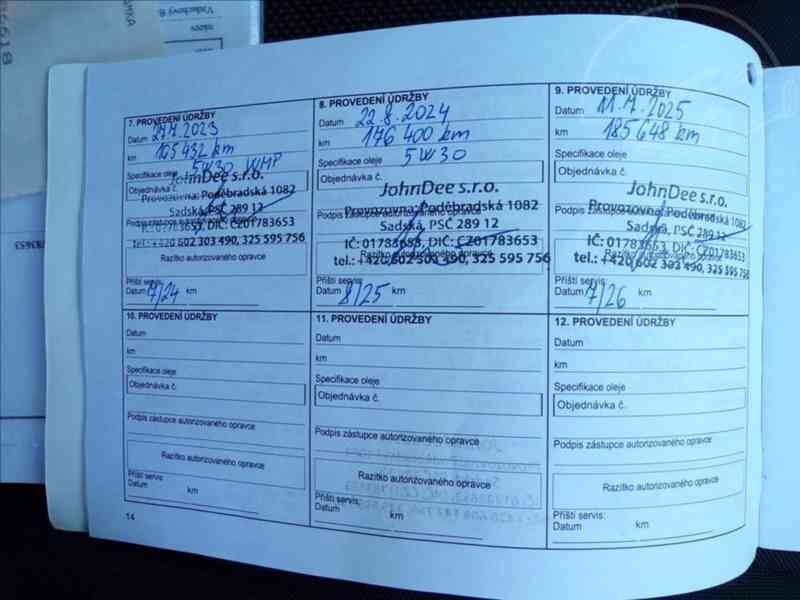 7. PROVEDENÍ ÚDRŽBY
Datum 27.7.2023
km 165 432 km
Specifikace oleje 5W30 WMP
Objednávka č.
JohnDee s.r.o.
Provozovna: Poděbradská 1082
Sadská, PSČ 289 12
Podpis zástupce autorizovaného opravce
IČ: 01783653, DIČ: CZ01783653
tel.: +420 602 303 490, 325 595 756
Razítko autorizovaného opravce
Příští servis:
Datum 7/24 km
8. PROVEDENÍ ÚDRŽBY
Datum 22.8.2024
km 176 400 km
Specifikace oleje 5W30
Objednávka č.
JohnDee s.r.o.
Provozovna: Poděbradská 1082
Podpis zástupce autorizovaného opravce
Sadská, PSČ 289 12
IČ: 01783653, DIČ: CZ01783653
Razítko autorizovaného opravce
tel.: +420 602 303 490, 325 595 756
Příští servis:
Datum 8/25 km
9. PROVEDENÍ ÚDRŽBY
Datum 11.7.2025
km 185 648 km
Specifikace oleje
Objednávka č.
JohnDee s.r.o.
Provozovna: Poděbradská 1082
Podpis zástupce autorizovaného opravce
Sadská, PSČ 289 12
IČ: 01783653, DIČ: CZ01783653
Razítko autorizovaného opravce
tel.: +420 602 303 490, 325 595 756
Příští servis:
Datum 7/26 km
10. PROVEDENÍ ÚDRŽBY
Datum
km
Specifikace oleje
Objednávka č.
Podpis zástupce autorizovaného opravce
Razítko autorizovaného opravce
Příští servis:
Datum km
11. PROVEDENÍ ÚDRŽBY
Datum
km
Specifikace oleje
Objednávka č.
Podpis zástupce autorizovaného opravce
Razítko autorizovaného opravce
Příští servis:
Datum km
12. PROVEDENÍ ÚDRŽBY
Datum
km
Specifikace oleje
Objednávka č.
Podpis zástupce autorizovaného opravce
Razítko autorizovaného opravce
Příští servis:
Datum km
14